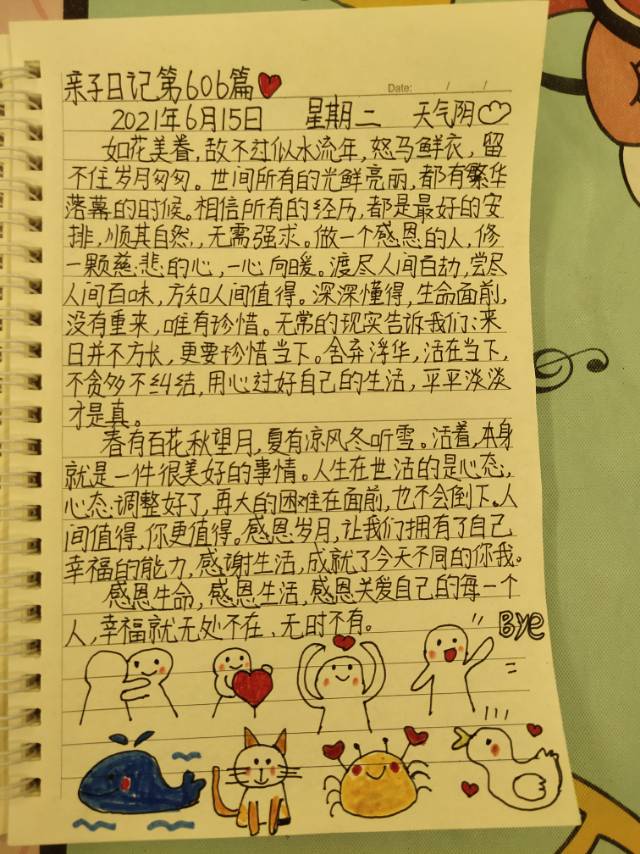 亲子日记第606篇
Date: / /
2021年6月15日 星期二 天气阴
如花美眷,敌不过似水流年,怒马鲜衣,留
不住岁月匆匆。世间所有的光鲜亮丽,都有繁华
落幕的时候。相信所有的经历,都是最好的安
排,顺其自然,无需强求。做一个感恩的人,修
一颗慈悲的心,一心向暖。渡尽人间百劫,尝尽
人间百味,方知人间值得。深深懂得,生命面前,
没有重来,唯有珍惜。无常的现实告诉我们:来
日并不方长,更要珍惜当下。舍弃浮华,活在当下,
不贪多不纠结,用心过好自己的生活,平平淡淡
才是真。
春有百花秋望月,夏有凉风冬听雪。活着,本身
就是一件很美好的事情。人生在世活的是心态,
心态调整好了,再大的困难在面前,也不会倒下。人
间值得,你更值得。感恩岁月,让我们拥有了自己
幸福的能力,感谢生活,成就了今天不同的你我。
感恩生命,感恩生活,感恩关爱自己的每一个
人,幸福就无处不在、无时不有。
Bye